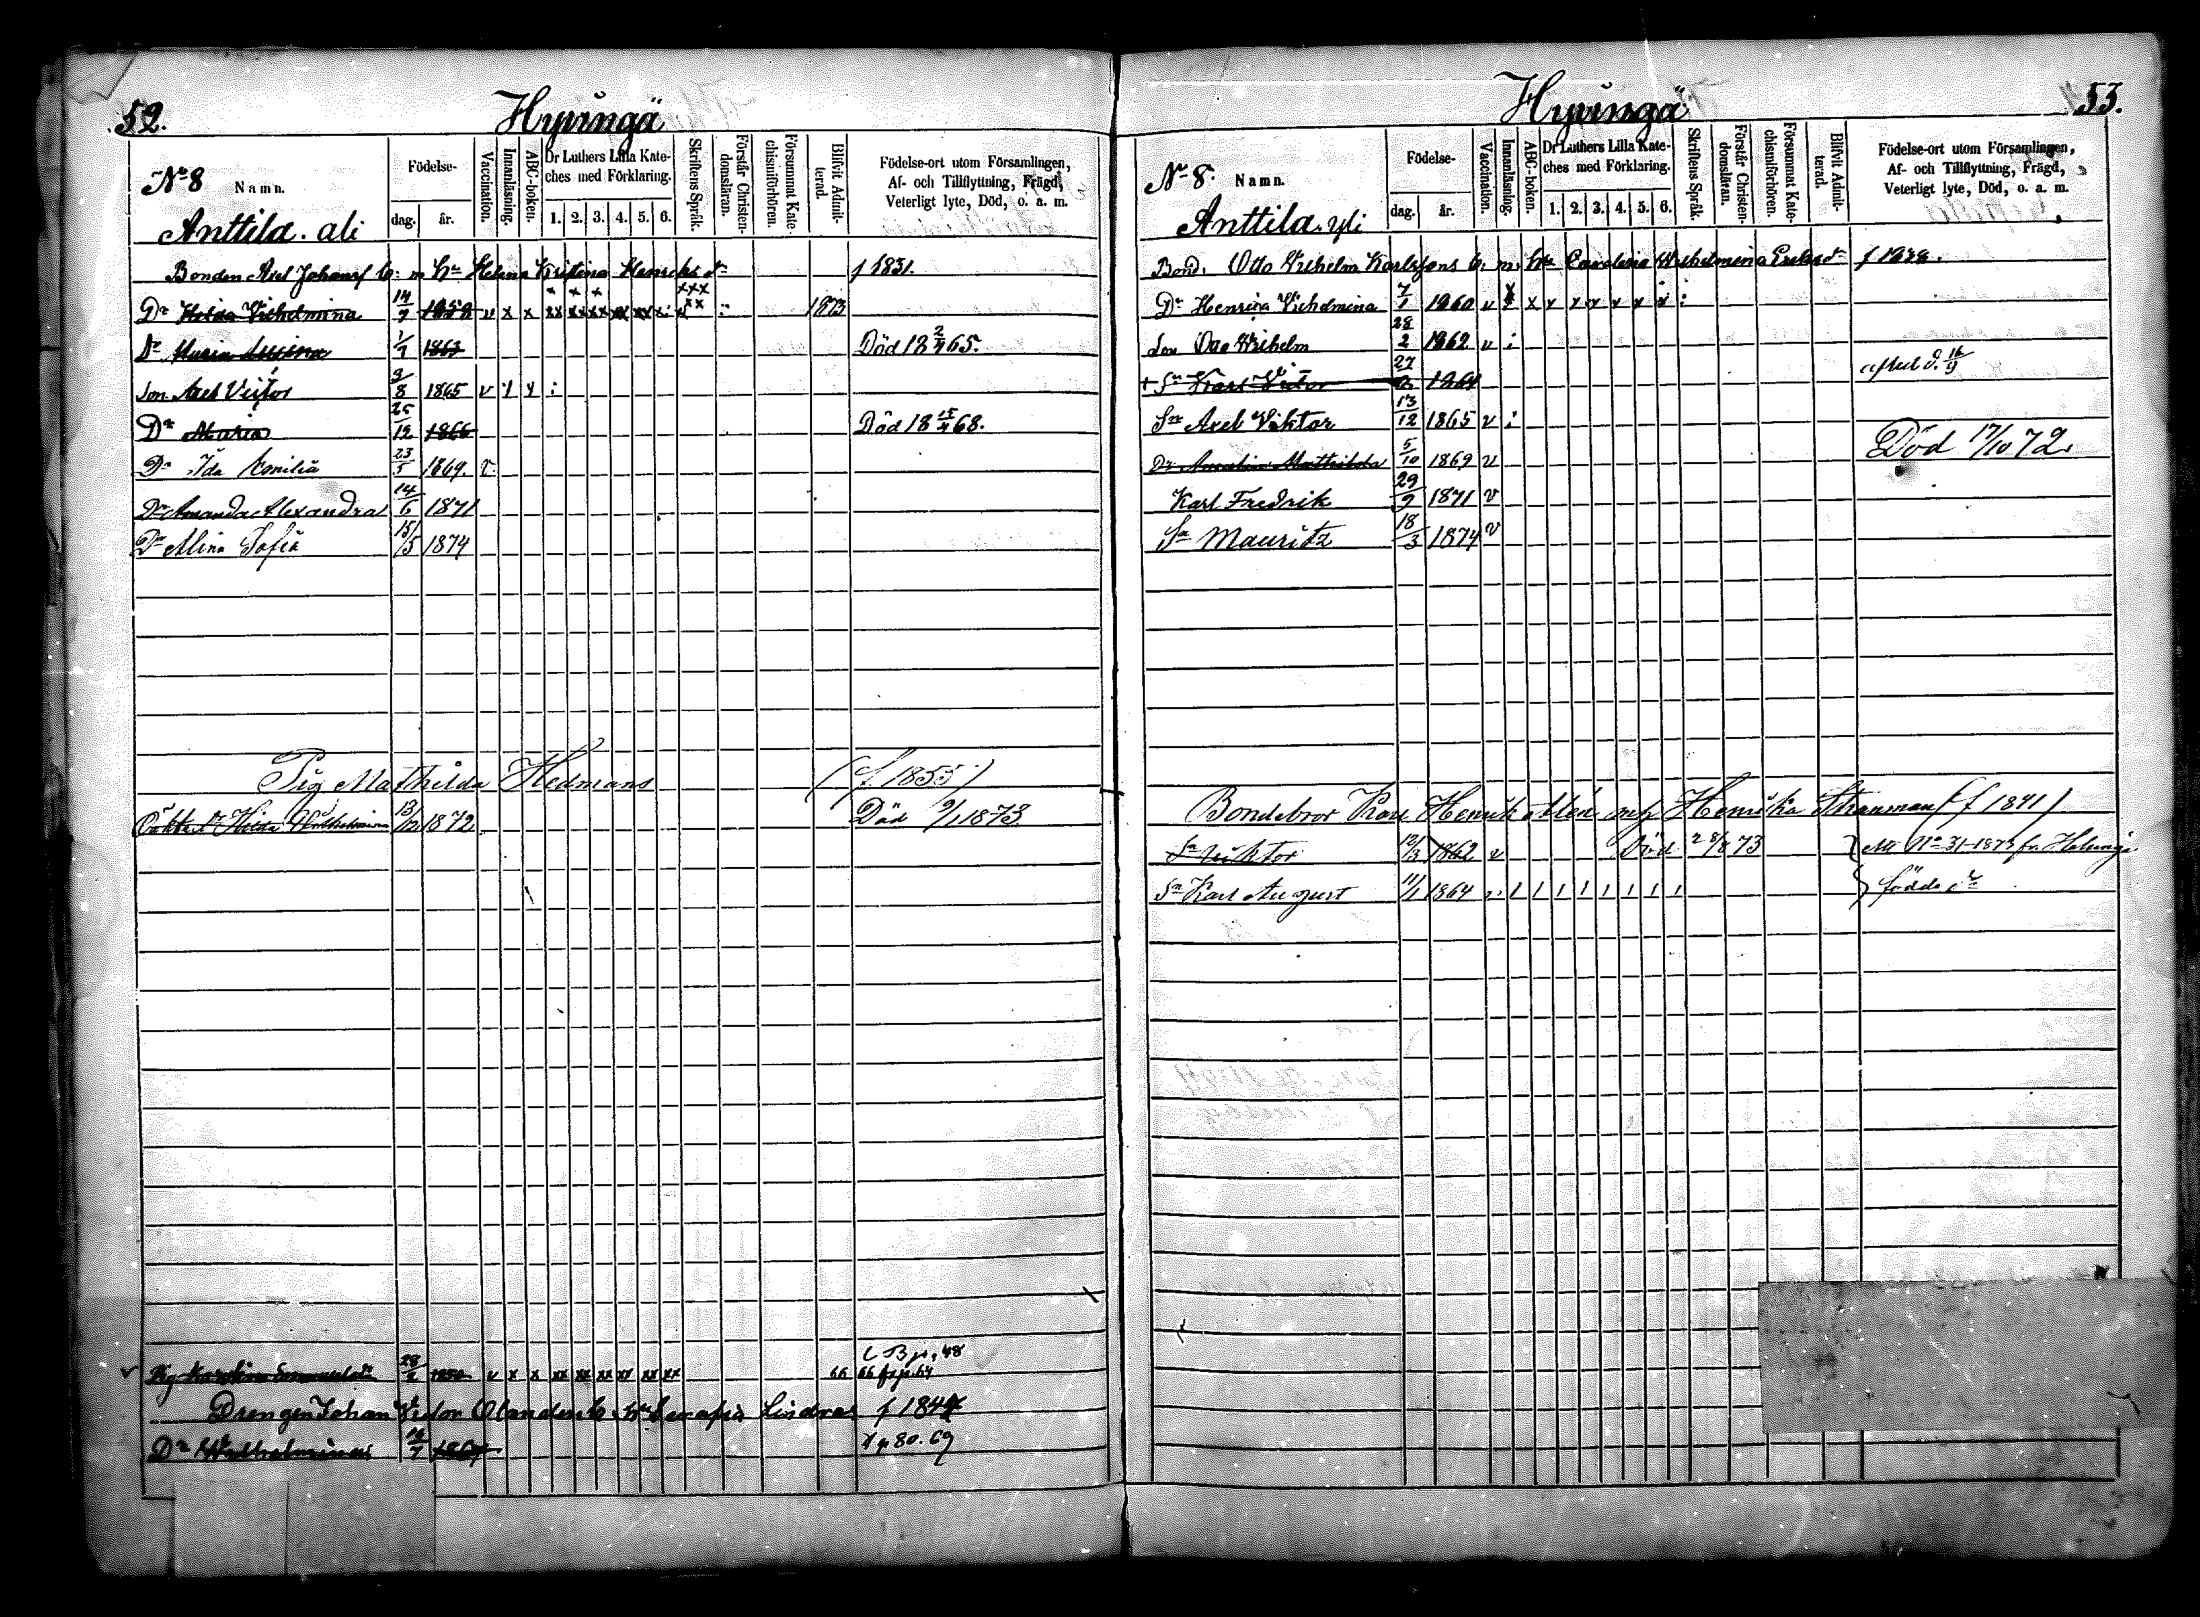 52.
Hyvingä
No 8
Namn.
Födelse-
dag. år.
Vaccination.
Innanläsning.
ABC-boken.
Dr Luthers Lilla Kate-
ches med Förklaring.
1. 2. 3. 4. 5. 6.
Skriftens Språk.
Förstår Christen-
domsläran.
Försummat Kate-
chismiförhören.
Blifvit Admit-
terad.
Födelse-ort utom Församlingen,
Af- och Tillflyttning, Frägd,
Veterligt lyte, Död, o. a. m.
Anttila. ali
Bonden Axel Johansf b: m Hu Helena Kristina Henriks dr f 1831.
Dr Hilda Vilhelmina 14/7 1858 v x x 1873
Dr Maria 1/7 1863 Död 18 2/4 65.
Son Axel Victor 3/8 1865 v
Dr Maria 25/12 1866 Död 18 15/4 68.
Dr Ida Emilia 23/5 1869. v.
Dr Amanda Alexandra 14/6 1871
Dr Mina Sofia 15/5 1874
Pig Mathilda Hedmans (f 1855)
Oäkta dr Hilda Wilhelmina 13/12 1872 Död 9/1 1873
28/2 v x x xx xx xx xx xx xx 66 66 fr. p. 64
Drengen Johan Victor f 1844
Dr Wilhelmina 1867 p 80. 69
53.
Hyvingä
No 8.
Namn.
Födelse-
dag. år.
Vaccination.
Innanläsning.
ABC-boken.
Dr Luthers Lilla Kate-
ches med Förklaring.
1. 2. 3. 4. 5. 6.
Skriftens Språk.
Förstår Christen-
domsläran.
Försummat Kate-
chismiförhören.
Blifvit Admit-
terad.
Födelse-ort utom Församlingen,
Af- och Tillflyttning, Frägd,
Veterligt lyte, Död, o. a. m.
Anttila. yli
Bond. Otto Vilhelm Karlssons b. m. Hu Carolina Wilhelmina f 1838.
Dr Henrica Vilhelmina 7/1 1860 v x x x x x x x
Son Otto Vilhelm 28/2 1862 v
+ Sn Karl Victor 27 1864 aflid. d. 16/9
Sn Axel Viktor 13/12 1865 v
Dr Amalia Mathilda 5/10 1869 v Död 17/10 72.
Karl Fredrik 29/9 1871 v
Sn Mauritz 18/3 1874 v
Bondebror Karl Henrik Alén m/h Henrika Stranman (f 1841)
Sn Viktor 12/3 1862 v Död 28/8 73
Sn Karl August 11/1 1864 födda